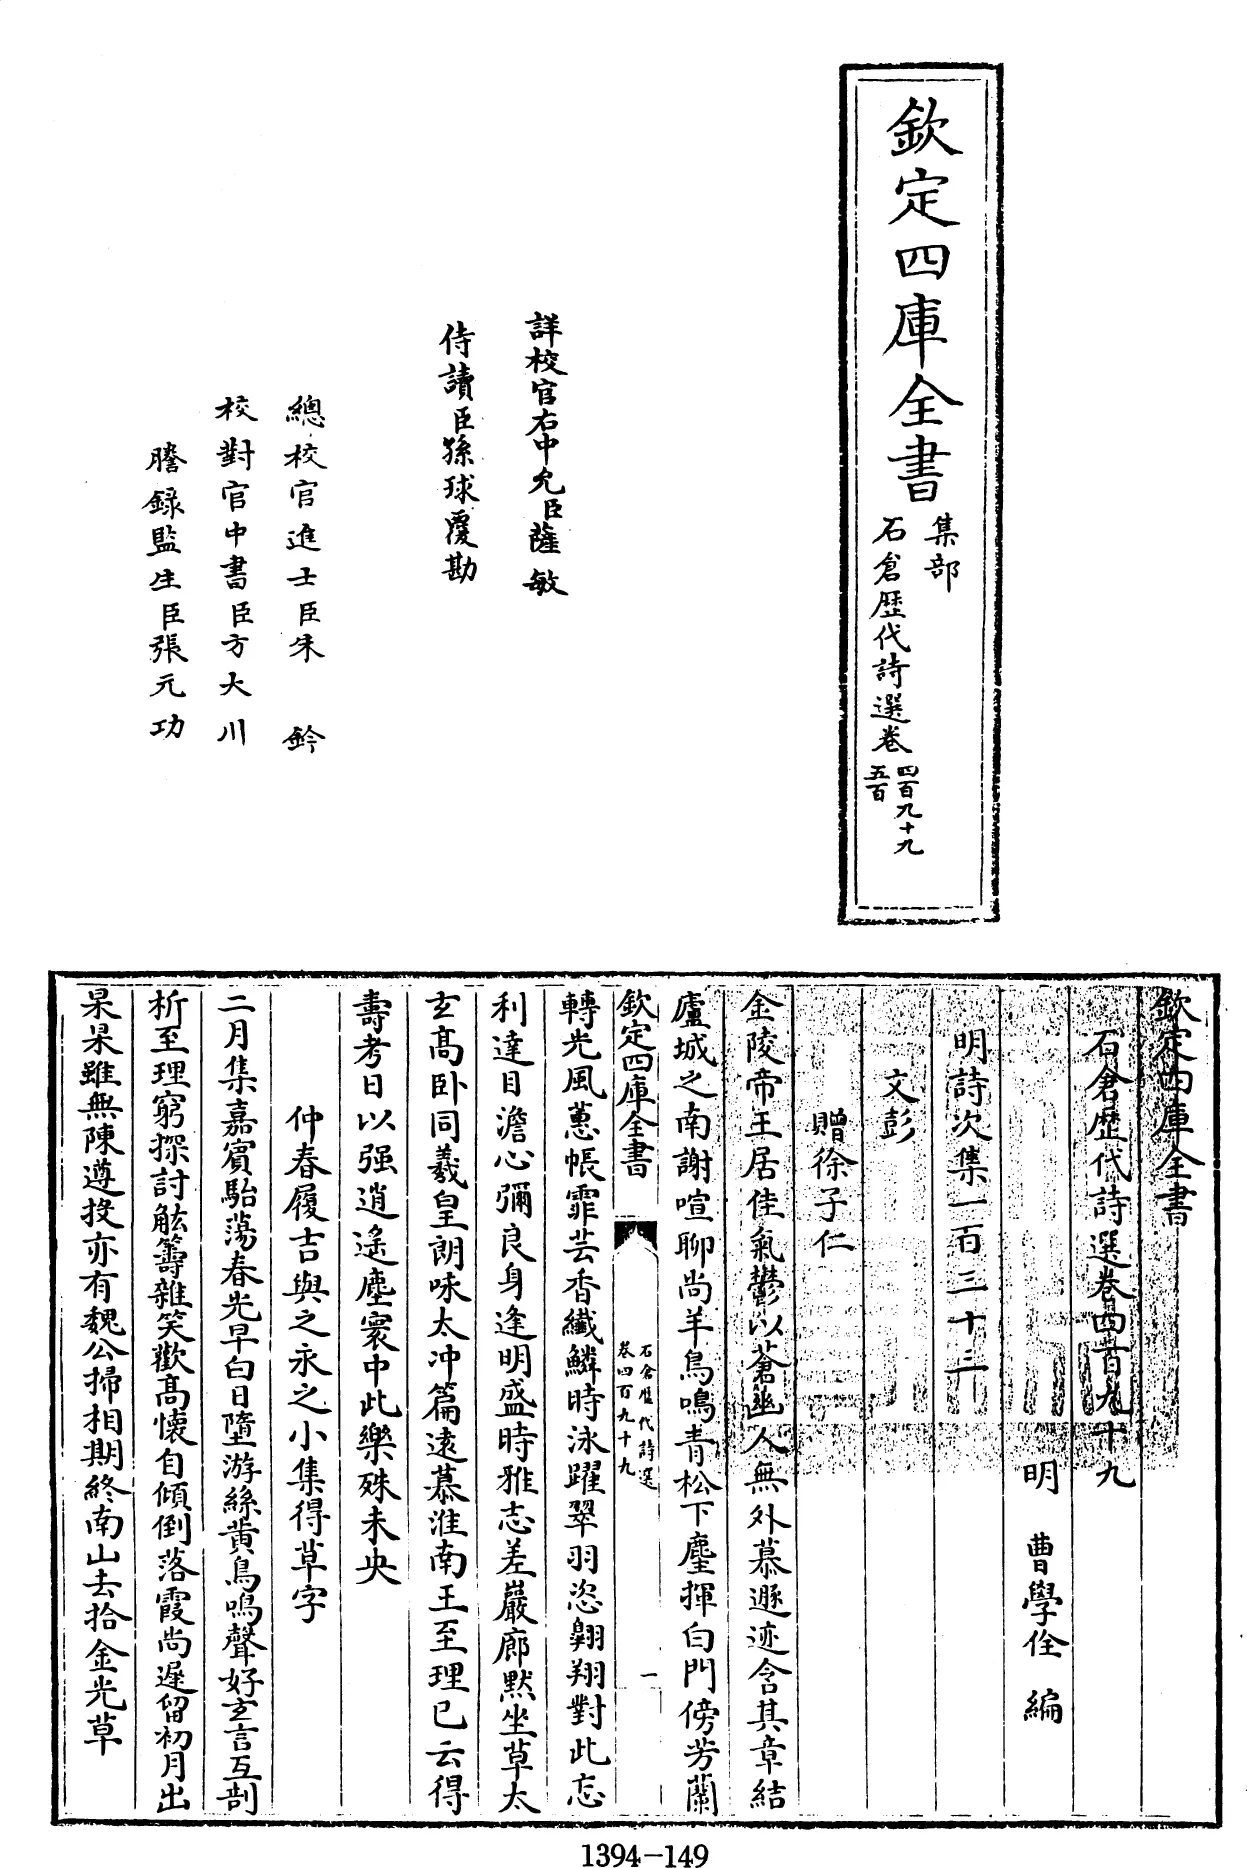 欽定四庫全書
集部
石倉歷代詩選卷
四百九十九
五百
詳校官右中允臣薩敏
侍讀臣孫球覆勘
總校官進士臣朱鈐
校對官中書臣方大川
謄錄監生臣張元功
欽定四庫全書
石倉歷代詩選卷四百九十九
明 曹學佺 編
明詩次集一百三十三
文彭
贈徐子仁
金陵帝王居佳氣鬱以蒼幽人無外慕遯迹含其章結
廬城之南謝喧聊尚羊鳥鳴青松下麈揮白門傍芳蘭
欽定四庫全書
石倉歷代詩選
卷四百九十九
一
轉光風蕙帳霏芸香纖鱗時泳躍翠羽恣翺翔對此忘
利達目澹心彌良身逢明盛時雅志差巖廊默坐草太
玄高臥同羲皇朗咏太冲篇遠慕淮南王至理已云得
壽考日以强逍遙塵寰中此樂殊未央
仲春履吉與之永之小集得草字
二月集嘉賓駘蕩春光早白日墮游絲黄鳥鳴聲好玄言互剖
析至理窮探討觥籌雜笑歡高懷自傾倒落霞尚遲留初月出
杲杲雖無陳遵投亦有魏公掃相期終南山去拾金光草
1394-149